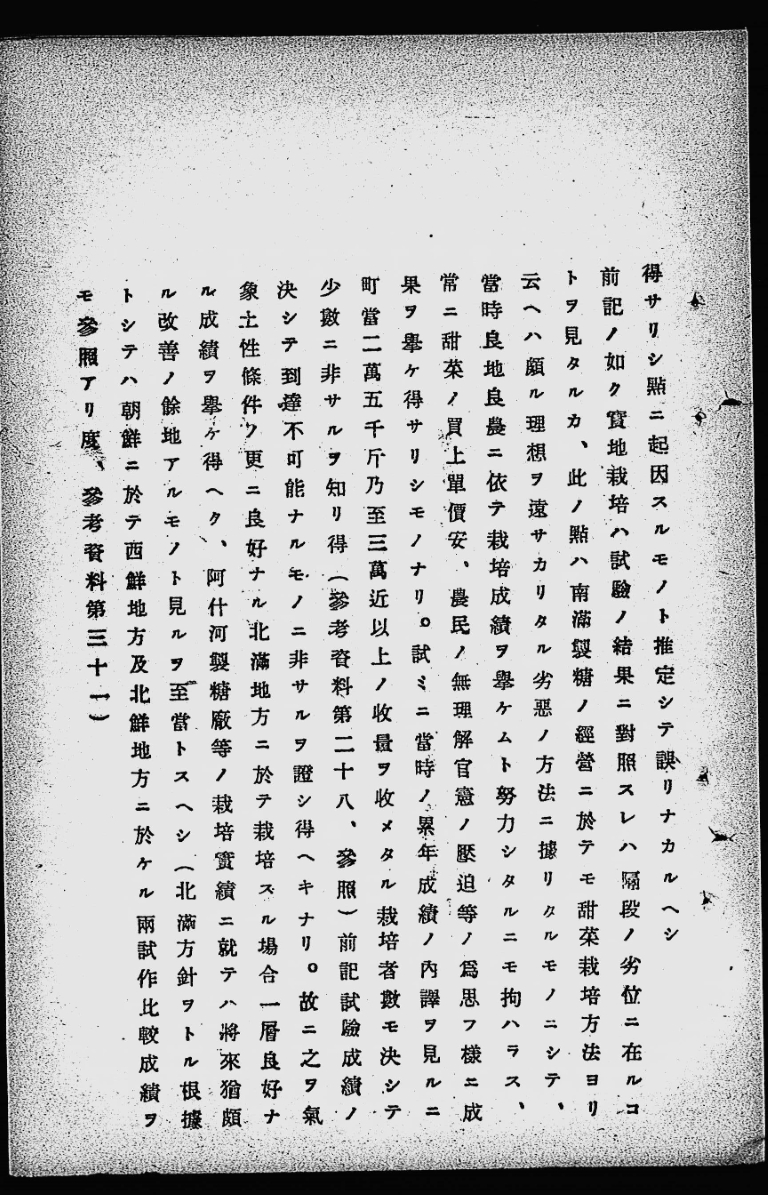 得サリシ點ニ起因スルモノト推定シテ誤リナカルヘシ
前記ノ如ク實地栽培ハ試驗ノ結果ニ對照スレハ隔段ノ劣位ニ在ルコ
トヲ見タルカ、此ノ點ハ南滿製糖ノ經營ニ於テモ甜菜栽培方法ヨリ
云ヘハ頗ル理想ヲ遠サカリタル劣惡ノ方法ニ據リタルモノニシテ、
當時良地良農ニ依テ栽培成績ヲ擧ケムト努力シタルニモ拘ハラス、
常ニ甜菜ノ買上單價安、農民ノ無理解官憲ノ壓迫等ノ爲思フ樣ニ成
果ヲ擧ケ得サリシモノナリ。試ミニ當時ノ累年成績ノ內譯ヲ見ルニ
町當二萬五千斤乃至三萬近以上ノ收量ヲ收メタル栽培者數モ決シテ
少數ニ非サルヲ知リ得（參考資料第二十八、參照）前記試驗成績ノ
決シテ到達不可能ナルモノニ非サルヲ證シ得ヘキナリ。故ニ之ヲ氣
象土性條件ノ更ニ良好ナル北滿地方ニ於テ栽培スル場合一層良好ナ
ル成績ヲ擧ケ得ヘク、阿什河製糖廠等ノ栽培實績ニ就テハ將來猶頗
ル改善ノ餘地アルモノト見ルヲ至當トスヘシ（北滿方針ヲトル根據
トシテハ朝鮮ニ於テ西鮮地方及北鮮地方ニ於ケル兩試作比較成績ヲ
モ參照アリ度、參考資料第三十一）